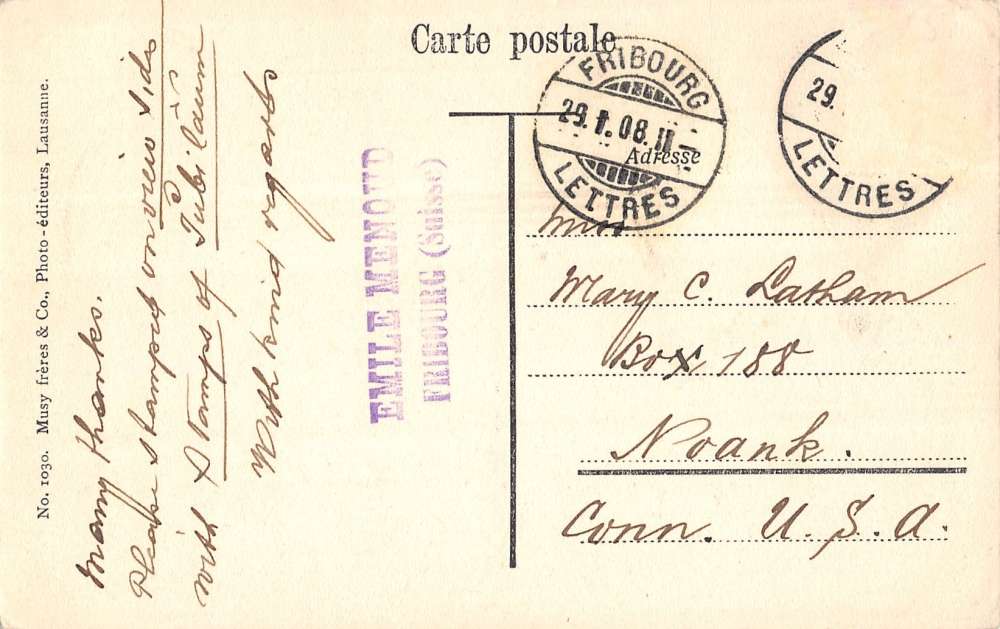 Carte postale
FRIBOURG
29.1.08.II-
LETTRES
29.
LETTRES
Adresse
Miss
Mary C. Latham
Box 188
Noank.
Conn. U. S. A.
No. 1030. Musy frères & Co., Photo-éditeurs, Lausanne.
Many thanks.
Please stamped on view side
with stamps of Jubiläum
With kind regards
EMILE MENOUD
FRIBOURG (Suisse)